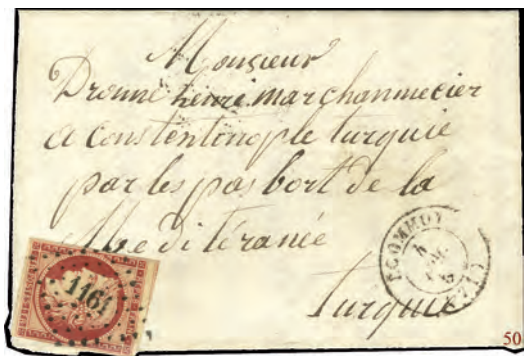 Monsieur
Dronne henri marchanmecier
a Constentinople turquie
par les pas bort de la
Me ditéranée
turquie
1161
50